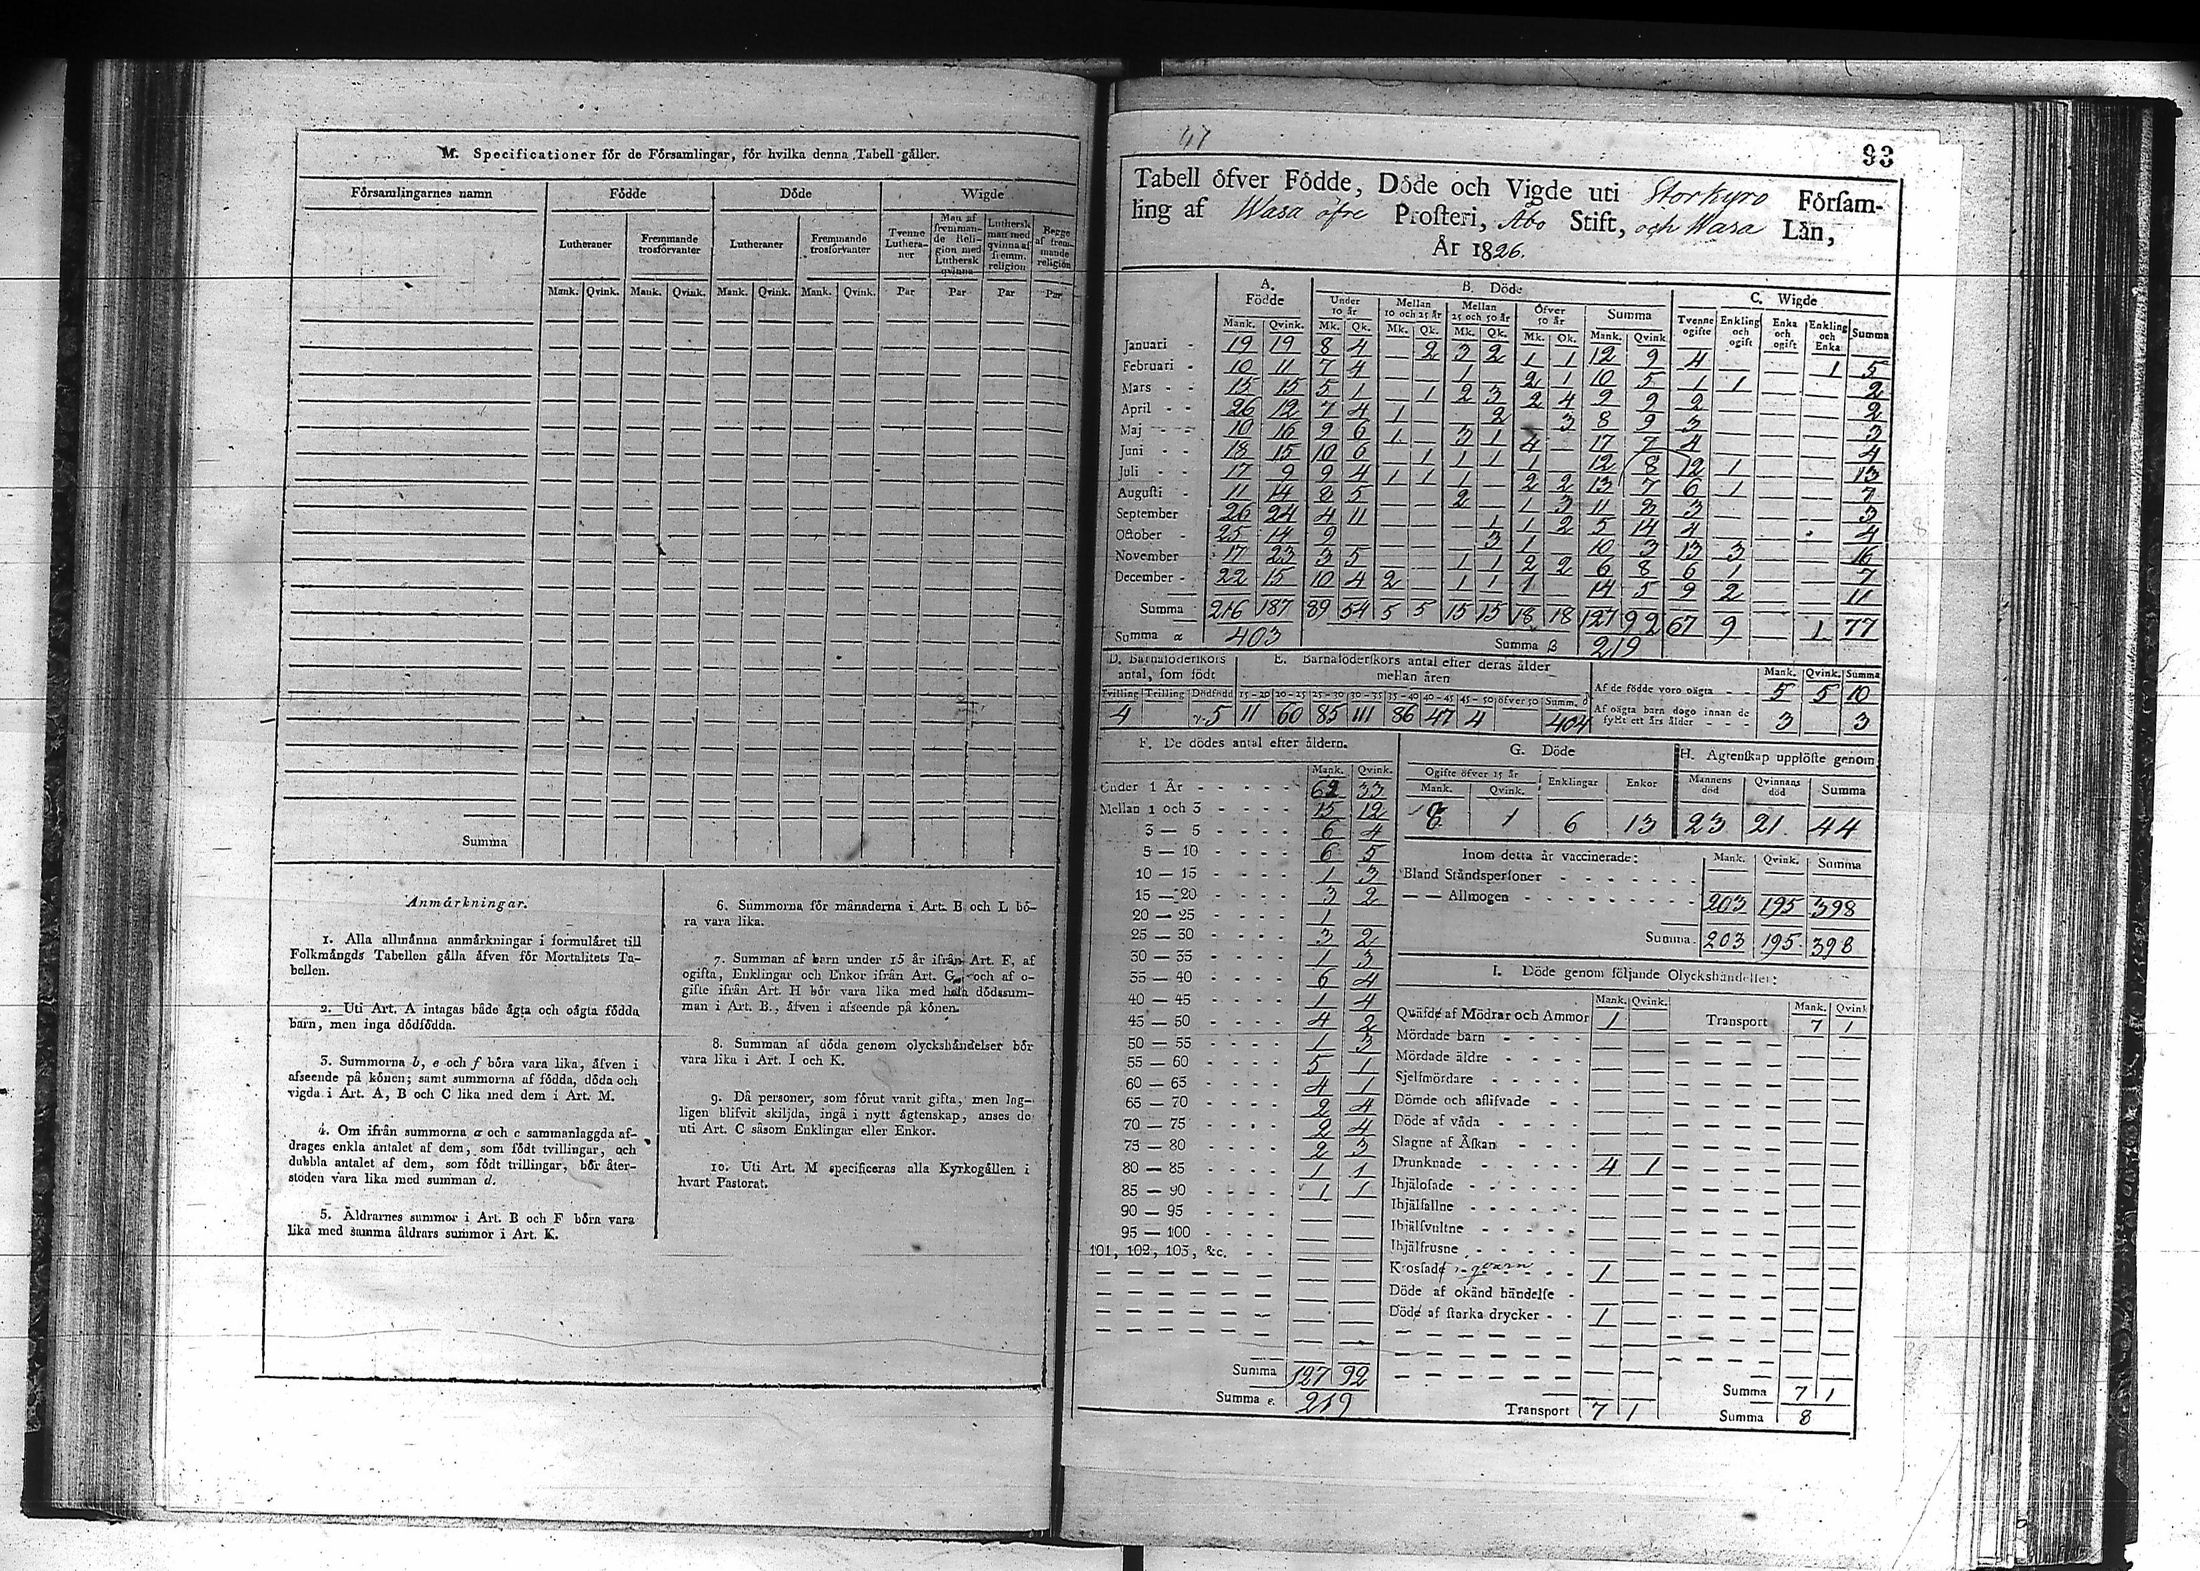 M. Specificationer för de Församlingar, för hvilka denna Tabell gäller.
Församlingarnes namn Födde Döde Wigde
Lutheraner Fremmande trosförvanter Lutheraner Fremmande trosförvanter Tvenne Lutheraner Man af fremmande Religion med Luthersk qvinna Luthersk man med qvinna af fremm. religion Begge af fremmande religion
Mank. Qvink. Mank. Qvink. Mank. Qvink. Mank. Qvink. Par Par Par Par
Summa
Anmärkningar.
1. Alla allmänna anmärkningar i formuläret till
Folkmängds Tabellen gälla äfven för Mortalitets Ta-
bellen.
2. Uti Art. A intagas både ägta och oägta födda
barn, men inga dödfödda.
3. Summorna b, e och f böra vara lika, äfven i
afseende på könen; samt summorna af födda, döda och
vigda i Art. A, B och C lika med dem i Art. M.
4. Om ifrån summorna a och c sammanlaggda af-
drages enkla antalet af dem, som födt tvillingar, och
dubbla antalet af dem, som födt trillingar, bör åter-
stoden vara lika med summan d.
5. Åldrarnes summor i Art. B och F böra vara
lika med samma åldrars summor i Art. K.
6. Summorna för månaderna i Art. B och L bö-
ra vara lika.
7. Summan af barn under 15 år ifrån Art. F, af
ogifta, Enklingar och Enkor ifrån Art. G, och af o-
gifte ifrån Art. H bör vara lika med hela dödssum-
man i Art. B., äfven i afseende på könen.
8. Summan af döda genom olyckshändelser bör
vara lika i Art. I och K.
9. Då personer, som förut varit gifta, men lag-
ligen blifvit skiljda, ingå i nytt ägtenskap, anses de
uti Art. C såsom Enklingar eller Enkor.
10. Uti Art. M specificeras alla Kyrkogällen i
hvart Pastorat.
47
93
Tabell öfver Födde, Döde och Vigde uti Storkyro Församling
ling af Wasa öfre Prosteri, Åbo Stift, och Wasa Län,
År 1826.
A. Födde B. Döde C. Wigde
Under 10 år Mellan 10 och 25 år Mellan 25 och 50 år Öfver 50 år Summa Tvenne ogifte Enkling och ogift Enka och ogift Enkling och Enka Summa
Mank. Qvink. Mk. Qk. Mk. Qk. Mk. Qk. Mk. Qk. Mank. Qvink
Januari - 19 19 8 4 — 2 3 2 1 1 12 9 4 — — 1 5
Februari - 10 11 7 4 — — 1 — 2 1 10 5 1 1 — — 2
Mars - - 15 15 5 1 — 1 2 3 2 4 9 9 2 — — — 2
April - - 26 12 7 4 1 — — 2 — 3 8 9 3 — — — 3
Maj - - 10 16 9 6 1 — 3 1 4 — 17 7 4 — — — 4
Juni - - 18 15 10 6 — 1 1 1 1 — 12 8 12 1 — — 13
Juli - - 17 9 9 4 1 1 1 — 2 2 13 7 6 1 — — 7
Augusti - 11 14 8 5 — — 2 — 1 3 11 8 3 — — — 3
September 26 24 4 11 — — — 1 1 2 5 14 4 — — — 4
October - 25 14 9 — — — — 3 1 — 10 3 13 3 — — 16
November 17 23 3 5 — — 1 1 2 2 6 8 6 1 — — 7
December - 22 15 10 4 2 — 1 1 1 — 14 5 9 2 — — 11
Summa 216 187 89 54 5 5 15 15 18 18 127 92 67 9 — 1 77
Summa a 403 Summa ß 219
D. Barnaföderskors antal, som födt E. Barnaföderskors antal efter deras ålder mellan åren
Mank. Qvink. Summa
Tvilling Trilling Dödfödd 15-20 20-25 25-30 30-35 35-40 40-45 45-50 öfver 50 Summ. d
4 5 11 60 85 111 86 47 4 404
Af de födde voro oägta - - 5 5 10
Af oägta barn dogo innan de
fyllt ett års ålder - - - 3 3
F. De dödes antal efter åldern.
Mank. Qvink.
Under 1 År - - - - - 62 33
Mellan 1 och 3 - - - - 15 12
3 — 5 - - - - 6 4
5 — 10 - - - - 6 5
10 — 15 - - - - 1 3
15 — 20 - - - - 3 2
20 — 25 - - - - 1
25 — 30 - - - - 3 2
30 — 35 - - - - 1 3
35 — 40 - - - - 6 4
40 — 45 - - - - 1 4
45 — 50 - - - - 4 2
50 — 55 - - - - 1 3
55 — 60 - - - - 5 1
60 — 65 - - - - 4 1
65 — 70 - - - - 2 4
70 — 75 - - - - 2 4
75 — 80 - - - - 2 3
80 — 85 - - - - 1 1
85 — 90 - - - - 1 1
90 — 95 - - - -
95 — 100 - - - -
101, 102, 103, &c. - -
Summa 127 92
Summa e. 219
G. Döde H. Ägtenskap upplöste genom
Ogifte öfver 15 år Enklingar Enkor Mannens död Qvinnans död Summa
Mank. Qvink.
1 6 13 23 21 44
Inom detta år vaccinerade: Mank. Qvink. Summa
Bland Ståndspersoner - - - - - - -
— — Allmogen - - - - - - - - 203 195 398
Summa 203 195 398
I. Döde genom följande Olyckshändelser:
Mank. Qvink. Mank. Qvink
Qväfde af Mödrar och Ammor 1 — Transport 7 1
Mördade barn - - - -
Mördade äldre - - - -
Sjelfmördare - - - - -
Dömde och aflifvade - -
Döde af våda - - - - -
Slagne af Åskan - - -
Drunknade - - - - - 4 1
Ihjälosade - - - - - -
Ihjälfallne - - - - - -
Ihjälsvultne - - - - -
Ihjälfrusne - - - - -
Krossade i qvarn - - 1
Döde af okänd händelse -
Döde af starka drycker - - 1
Summa 7 1
Transport 7 1 Summa 8